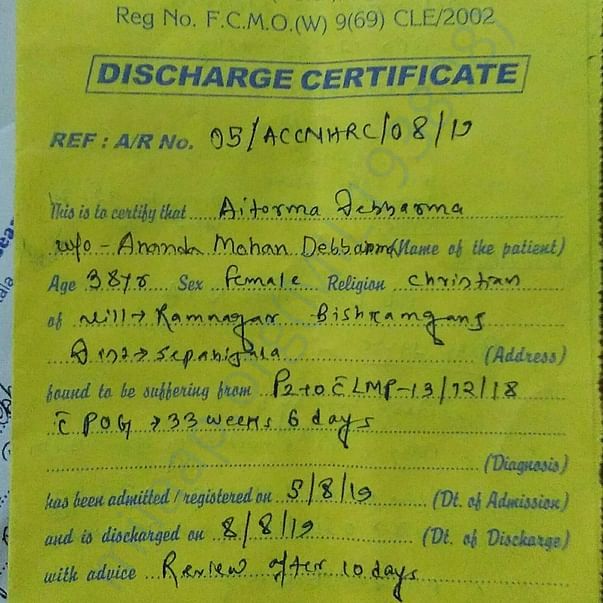 Reg No. F.C.M.O.(W) 9(69) CLE/2002
DISCHARGE CERTIFICATE
REF : A/R No. 05/ACCNHRC/08/19
This is to certify that Aitorma Debbarma
w/o - Ananda Mohan Debbarma (Name of the patient)
Age 38yr Sex female Religion christian
of vill→ Ramnagar Bishramganj
Dist→ Sepahijala (Address)
found to be suffering from P2+0 c̄ LMP-13/12/18
c̄ POG → 33 weeks 6 days
(Diagnosis)
has been admitted / registered on 5/8/19 (Dt. of Admission)
and is discharged on 8/8/19 (Dt. of Discharge)
with advice Review after 10 days